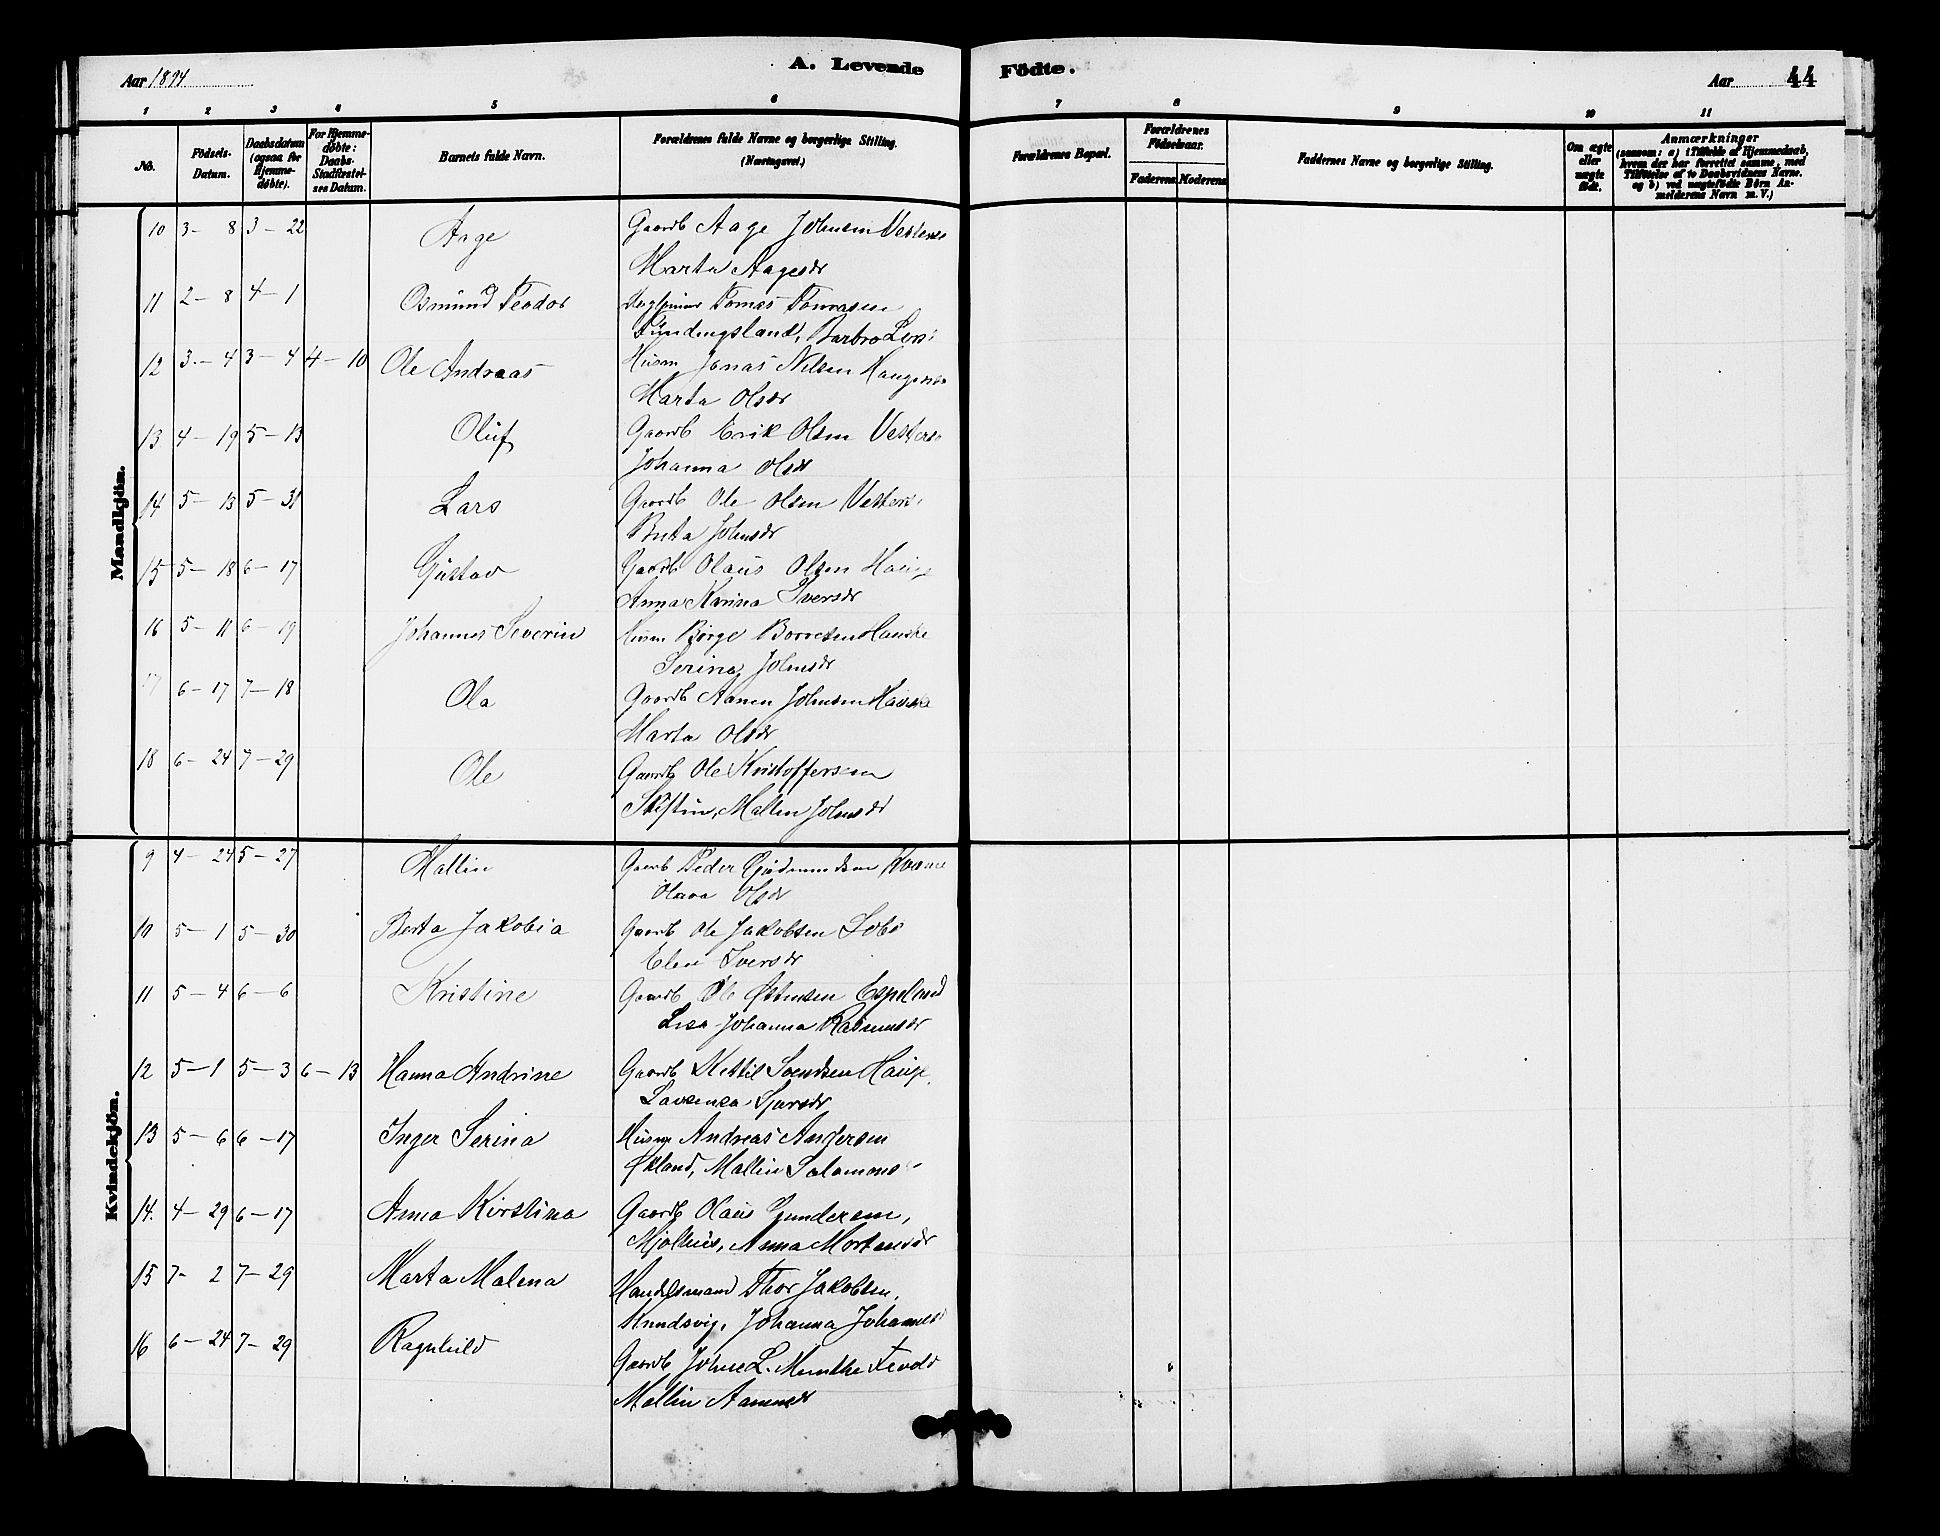 Aar 1894
A. Levende Födte.
Aar 44
1 2 3 4 5 6 7 8 9 10 11
No.
Födsels-Datum.
Daabsdatum (ogsaa for Hjemme-døbte).
For Hjemme-døbte: Daabs-Stadfæstel-ses Datum.
Barnets fulde Navn.
Forældrenes fulde Navne og borgerlige Stilling. (Næringsvei.)
Forældrenes Bopæl.
Forældrenes Födselsaar.
Faderens. Moderens.
Faddernes Navne og borgerlige Stilling.
Om ægte eller uægte født.
Anmærkninger
(saasom: a) i Tilfælde af Hjemmedaab, hvem der har forrettet samme, med Tilföielse af to Daabsvidners Navne. og b) ved uægtefödte Börn An-melderens Navn m. V.)
Mandkjön.
10 3 - 8 3 - 22 Aage Gaardb Aage Johnsen
Marta Aagesdr
11 2 - 8 4 - 1 Osmund Teodor Tomas Tomasen
Barbro Lars
12 3 - 4 3 - 4 4 - 10 Ole Andreas Husm Jonas Nilsen
Marta Olsdr
13 4 - 19 5 - 13 Oluf Gaardb Erik Olsen
Johanna Olsdr
14 5 - 13 5 - 31 Lars Gaardb Ole Olsen
Berta Johnsdr
15 5 - 18 6 - 17 Gustav Gaardb Olaus Olsen Hauge
Anna Karina Iversdr
16 5 - 11 6 - 19 Johannes Severin Husm Børge
Serina Johnsdr
17 6 - 17 7 - 18 Ola Gaardb Aanen Johnsen
Marta Olsdr
18 6 - 24 7 - 29 Ole Gaardb Ole Kristoffersen
Mallin Johnsdr
Kvindekjön.
9 4 - 24 5 - 27 Mallin Gaardb Peder Gudmundsen
Olava Olsdr
10 5 - 1 5 - 30 Berta Jakobia Gaardb Ole Jakobsen
Elen Iversdr
11 5 - 4 6 - 6 Kristine Gaardb Ole Østensen Espeland
Lisa Johanna Rasmusdr
12 5 - 1 5 - 3 6 - 13 Hanna Andrine Gaardb Kettil Svendsen Hauge,
13 5 - 6 6 - 17 Inger Serina Husm Andreas Andersen
Økland, Mallin Salamons
14. 4 - 29 6 - 17 Anna Kirstina Gaardb Olaus Gundersen,
Mjølhus, Anna Mortensdr
15 7 - 2 7 - 29 Marta Malena Handelsmand Thor Jakobsen,
Knudsvig, Johanna Johannes
16 6 - 24 7 - 29 Ragnhild Gaardb John L. Munthe
Mallin Aanensdr